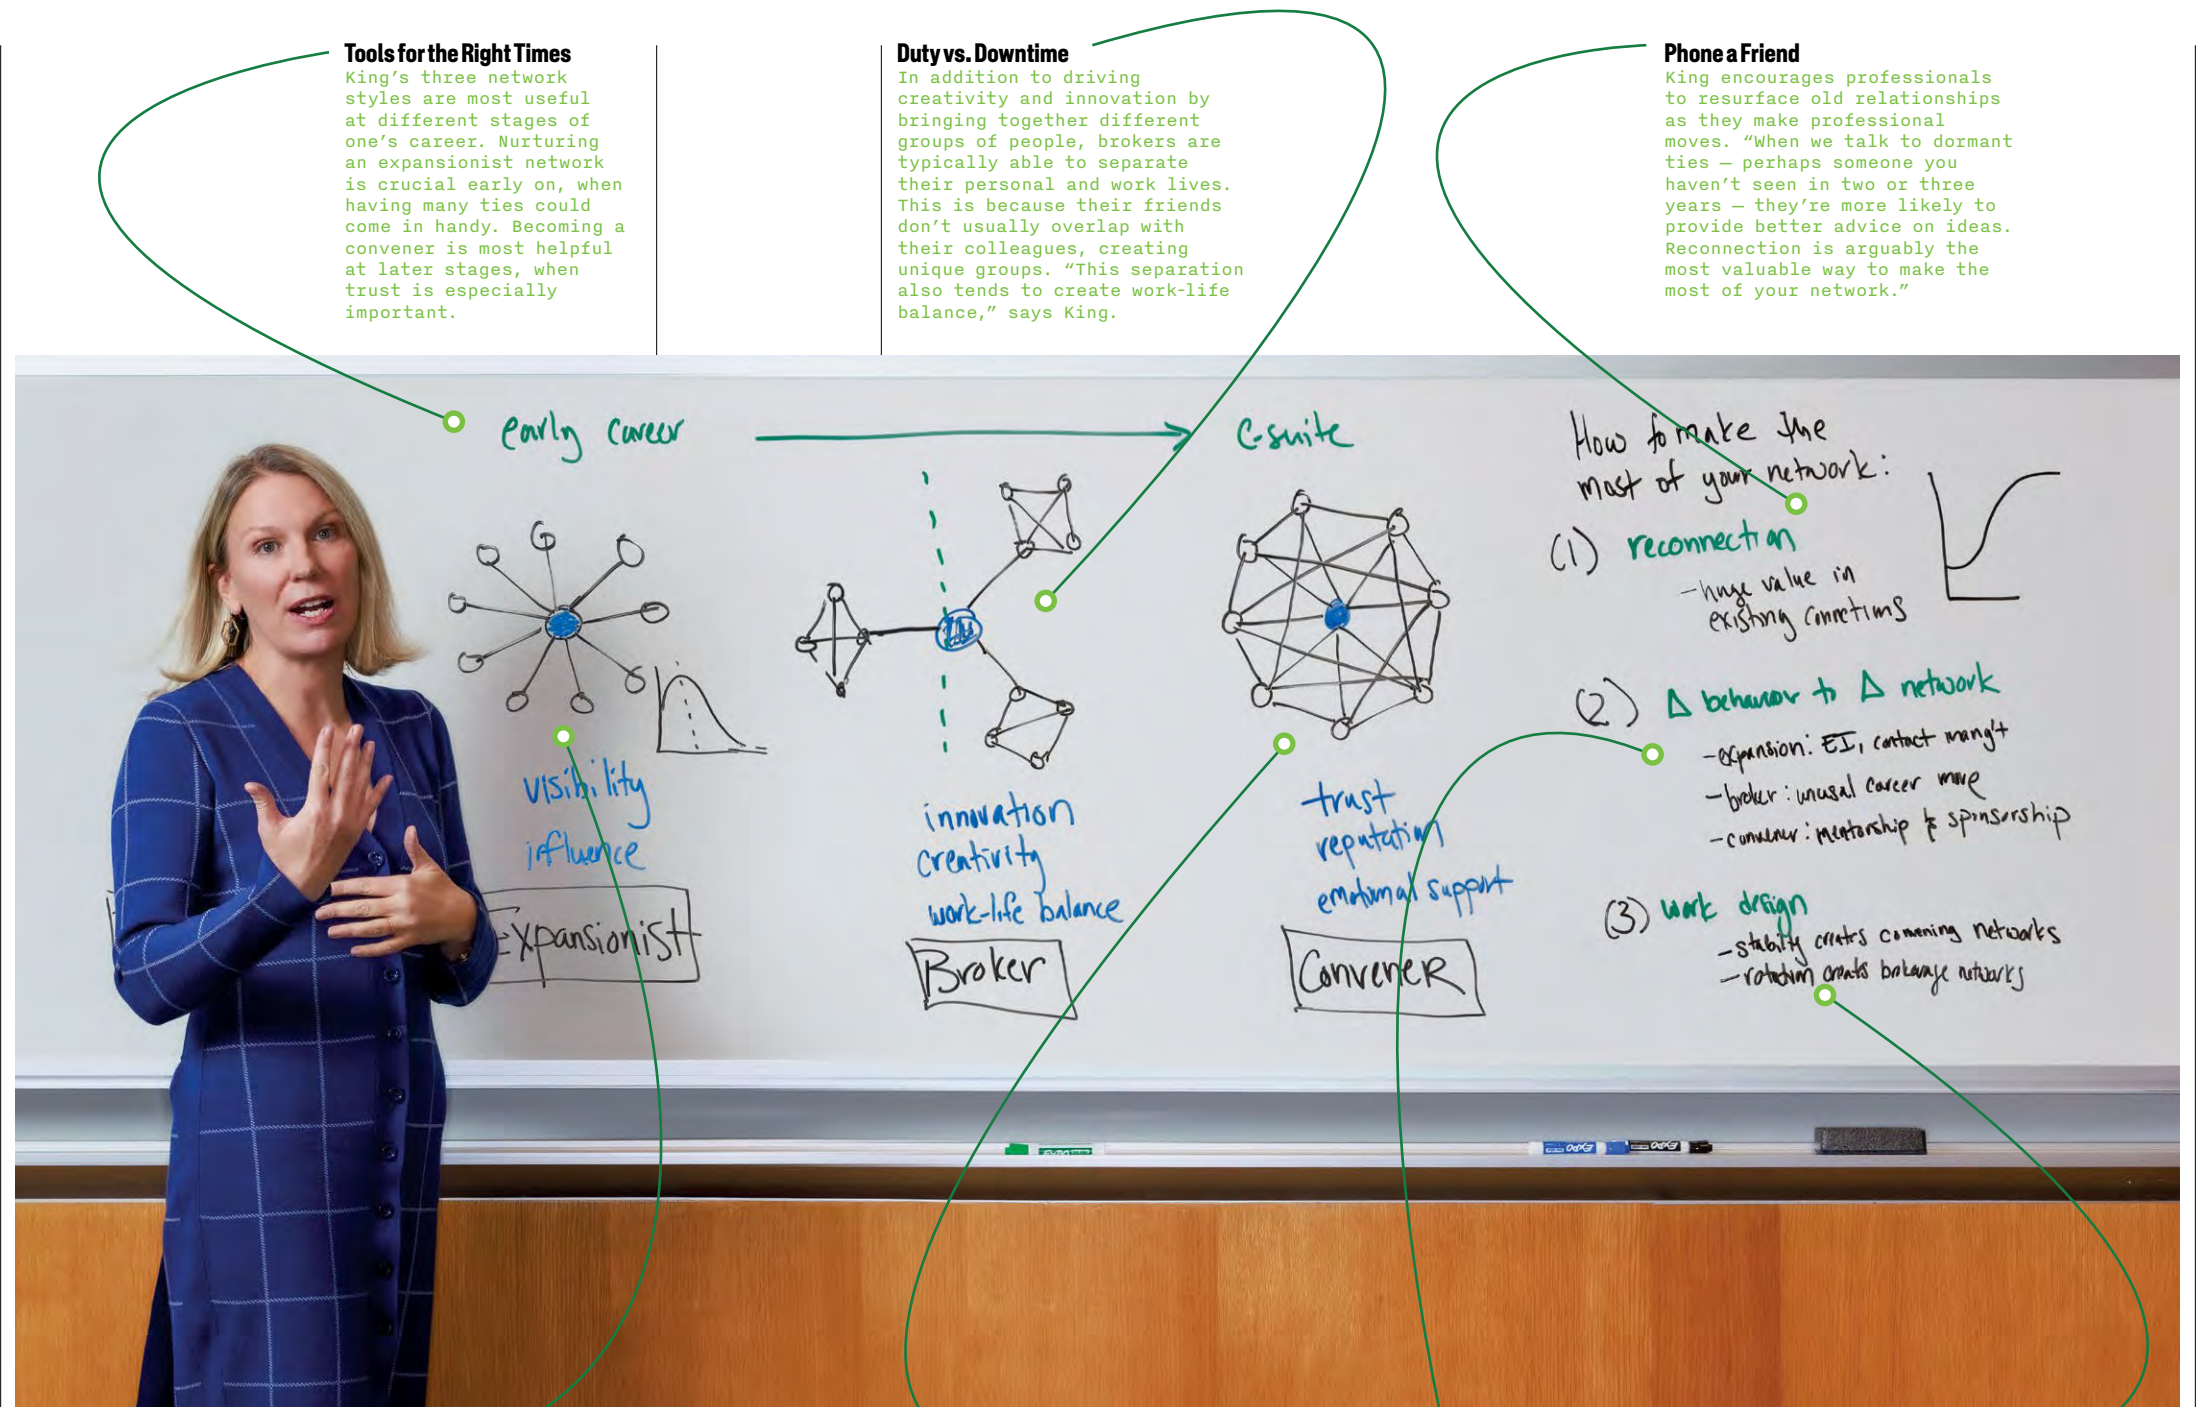 Tools for the Right Times
King’s three network
styles are most useful
at different stages of
one’s career. Nurturing
an expansionist network
is crucial early on, when
having many ties could
come in handy. Becoming a
convener is most helpful
at later stages, when
trust is especially
important.
Duty vs. Downtime
In addition to driving
creativity and innovation by
bringing together different
groups of people, brokers are
typically able to separate
their personal and work lives.
This is because their friends
don’t usually overlap with
their colleagues, creating
unique groups. “This separation
also tends to create work-life
balance,” says King.
Phone a Friend
King encourages professionals
to resurface old relationships
as they make professional
moves. “When we talk to dormant
ties — perhaps someone you
haven’t seen in two or three
years — they’re more likely to
provide better advice on ideas.
Reconnection is arguably the
most valuable way to make the
most of your network.”
early career
C-suite
visibility
influence
Expansionist
innovation
creativity
work-life balance
Broker
trust
reputation
emotional support
Convener
How to make the
most of your network:
(1) reconnection
- huge value in
existing connections
(2) Δ behavior to Δ network
- expansion: EI, contact mang't
- broker: unusal career move
- convener: mentorship & sponsorship
(3) work design
- stability creates convening networks
- rotation creates brokerage networks
EXPO
EXPO